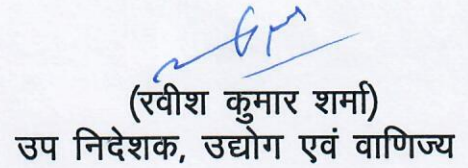 (रवीश कुमार शर्मा)
उप निदेशक, उद्योग एवं वाणिज्य